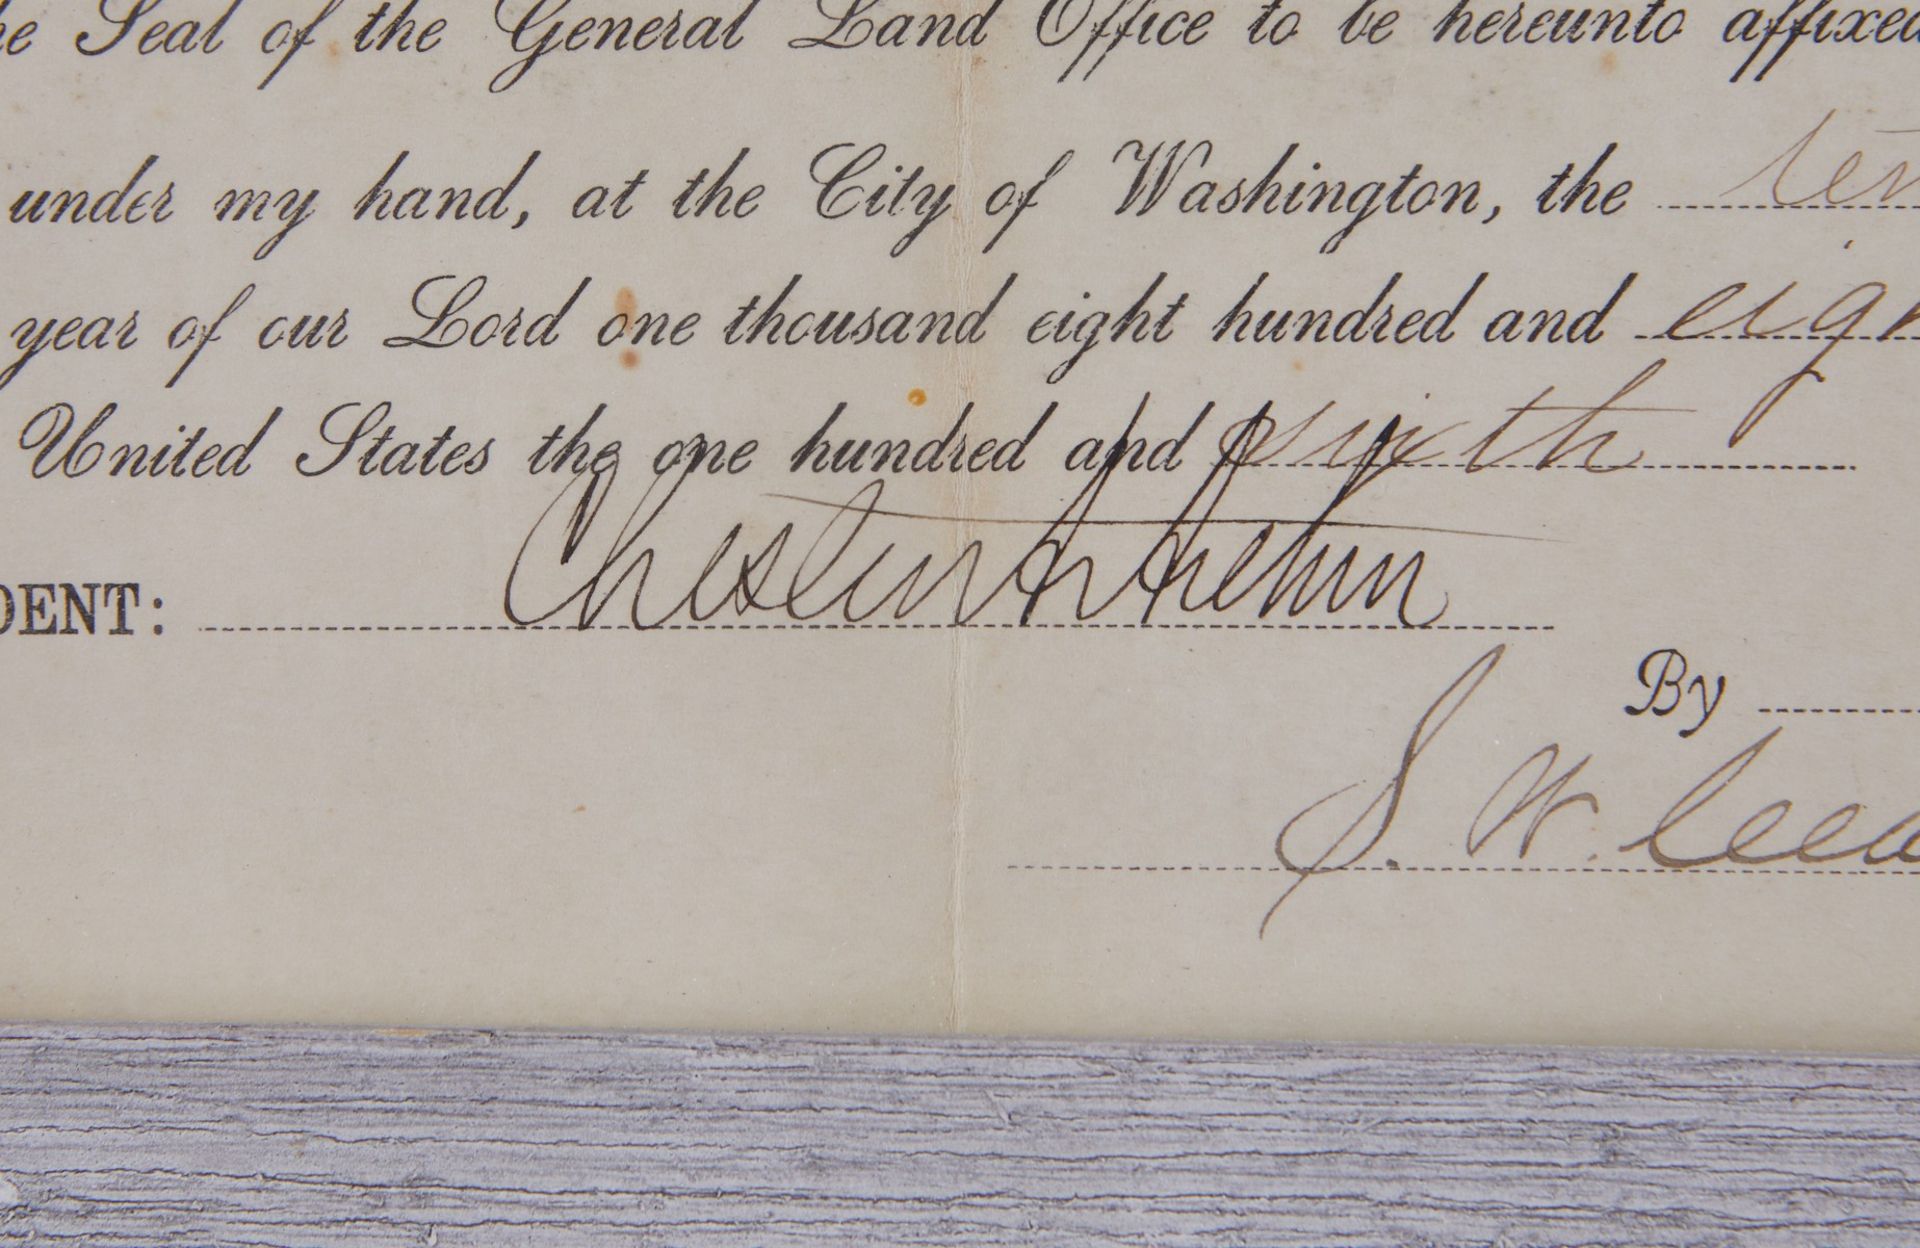 he Seal of the General Land Office to be hereunto affixed
under my hand, at the City of Washington, the ten
year of our Lord one thousand eight hundred and eigh
United States the one hundred and sixth
DENT: Chester A Arthur
By
S. W. Cla